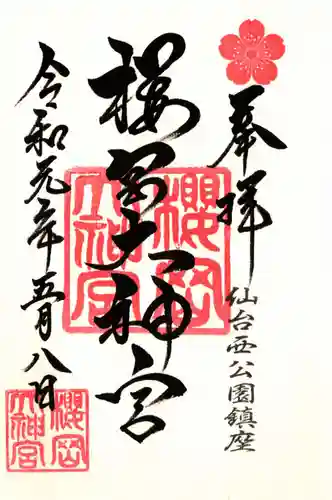 奉拝
仙台西公園鎮座
櫻岡大神宮
令和元年五月八日
櫻岡
大神宮
櫻岡
大神宮